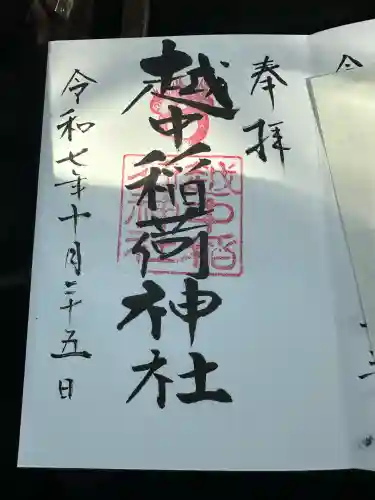 奉拝
越中稲荷神社
令和七年十月二十五日
越中稲